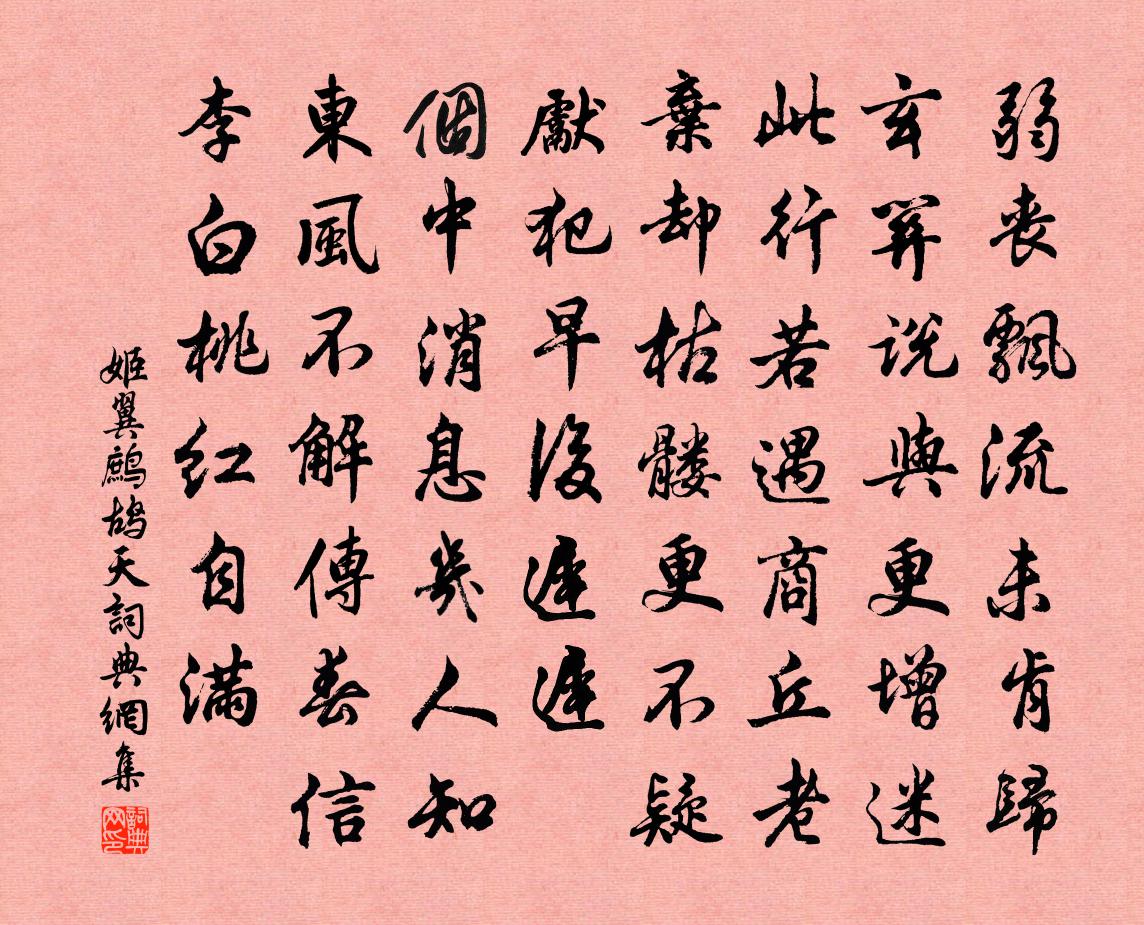 弱喪飄流未肯歸
玄筭說與更增迷
此行若遇商丘老
棄却枯髏更不疑
獻犯早後遲遲
個中消息幾人知
東風不解傳春信
李白桃紅自滿
姬翼鷓鴣天詞典網集
詞典网印